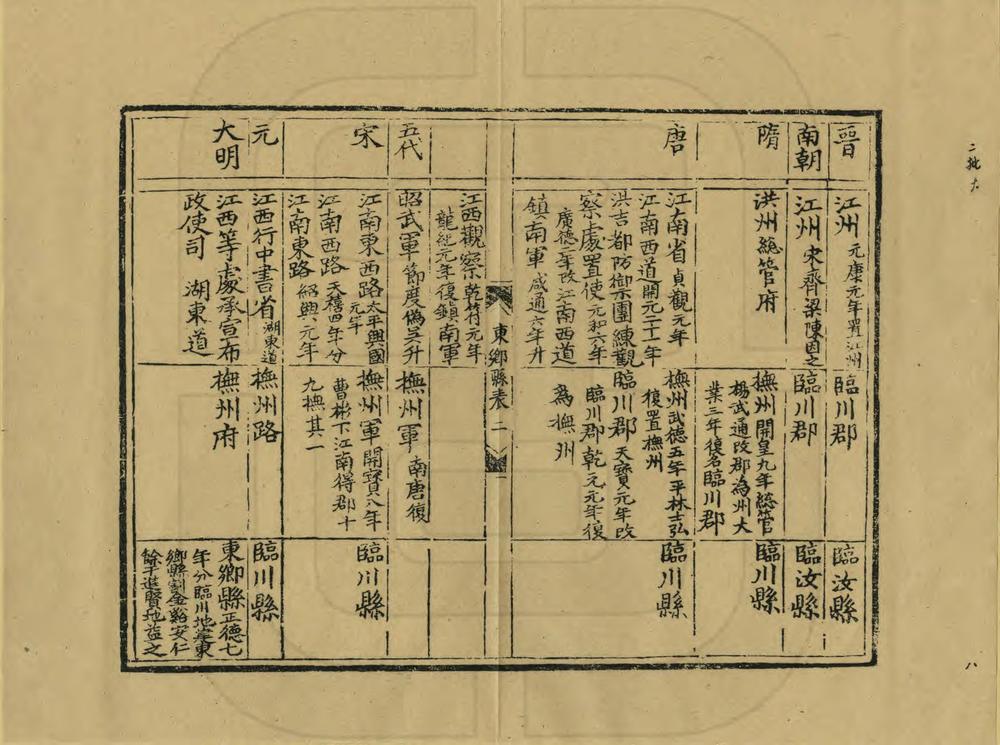 晉
江州 元康元年置江州
臨川郡
臨汝縣
南朝
江州 宋齊梁陳因之
臨川郡
臨汝縣
隋
洪州總管府
撫州開皇九年總管
楊武通改郡為州大
業三年復名臨川郡
臨川縣
唐
江南省貞觀元年
江南西道開元二十一年
洪吉都防禦團練觀
察處置使元和六年
廣德二年改江南西道
鎮南軍咸通六年升
撫州武德五年平林士弘
復置撫州
臨川郡天寶元年改
臨川郡乾元元年復
為撫州
臨川縣
江西觀察乾符元年
龍紀元年復鎮南軍
五代
昭武軍節度偽吳升
撫州軍南唐復
宋
江南東西路太平興國
元年
江南西路天禧四年分
江南東路紹興元年
撫州軍開寶八年
曹彬下江南得郡十
九撫其一
臨川縣
元
江西行中書省湖東道
撫州路
臨川縣
大明
江西等處承宣布
政使司 湖東道
撫州府
東鄉縣正德七
年分臨川地置東
鄉縣割金谿安仁
餘干進賢地益之
東鄉縣表 二
二批大
八